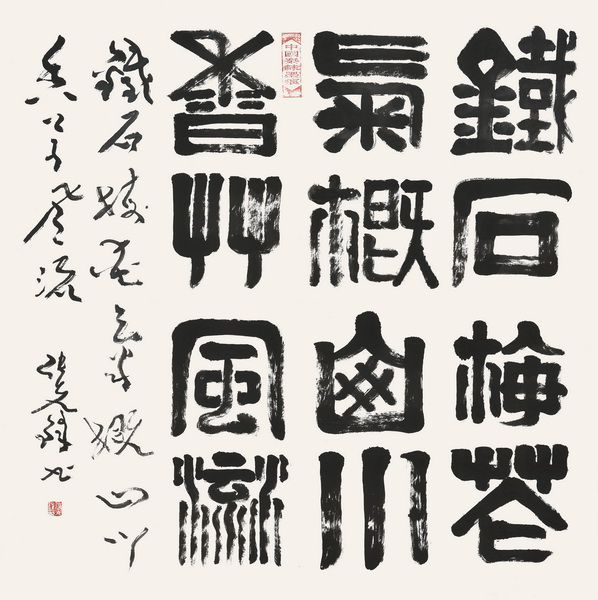 鐵石梅花
氣概山川
香草風流
鐵石梅花气概山川
香草風流